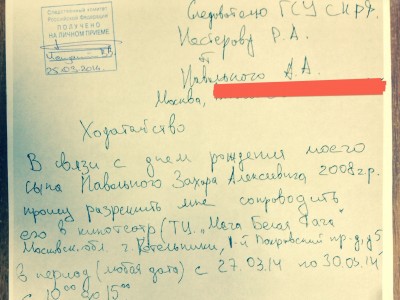 Следственный комитет
Российской Федерации
ПОЛУЧЕНО
НА ЛИЧНОМ ПРИЕМЕ
25.03.2014
Следователю ГСУ СК РФ
Нестерову Р.А.
от
Навального А.А.
Москва,
Ходатайство
В связи с днем рождения моего
сына Навального Захара Алексеевича 2008 г.р.
прошу разрешить мне сопроводить
его в кинотеатр (ТЦ „Мега Белая Дача"
Московск. обл. г. Котельники, 1-й Покровский пр-д, д 5
в период (любая дата) с 27.03.14 по 30.03.14
с 10⁰⁰ до 15⁰⁰